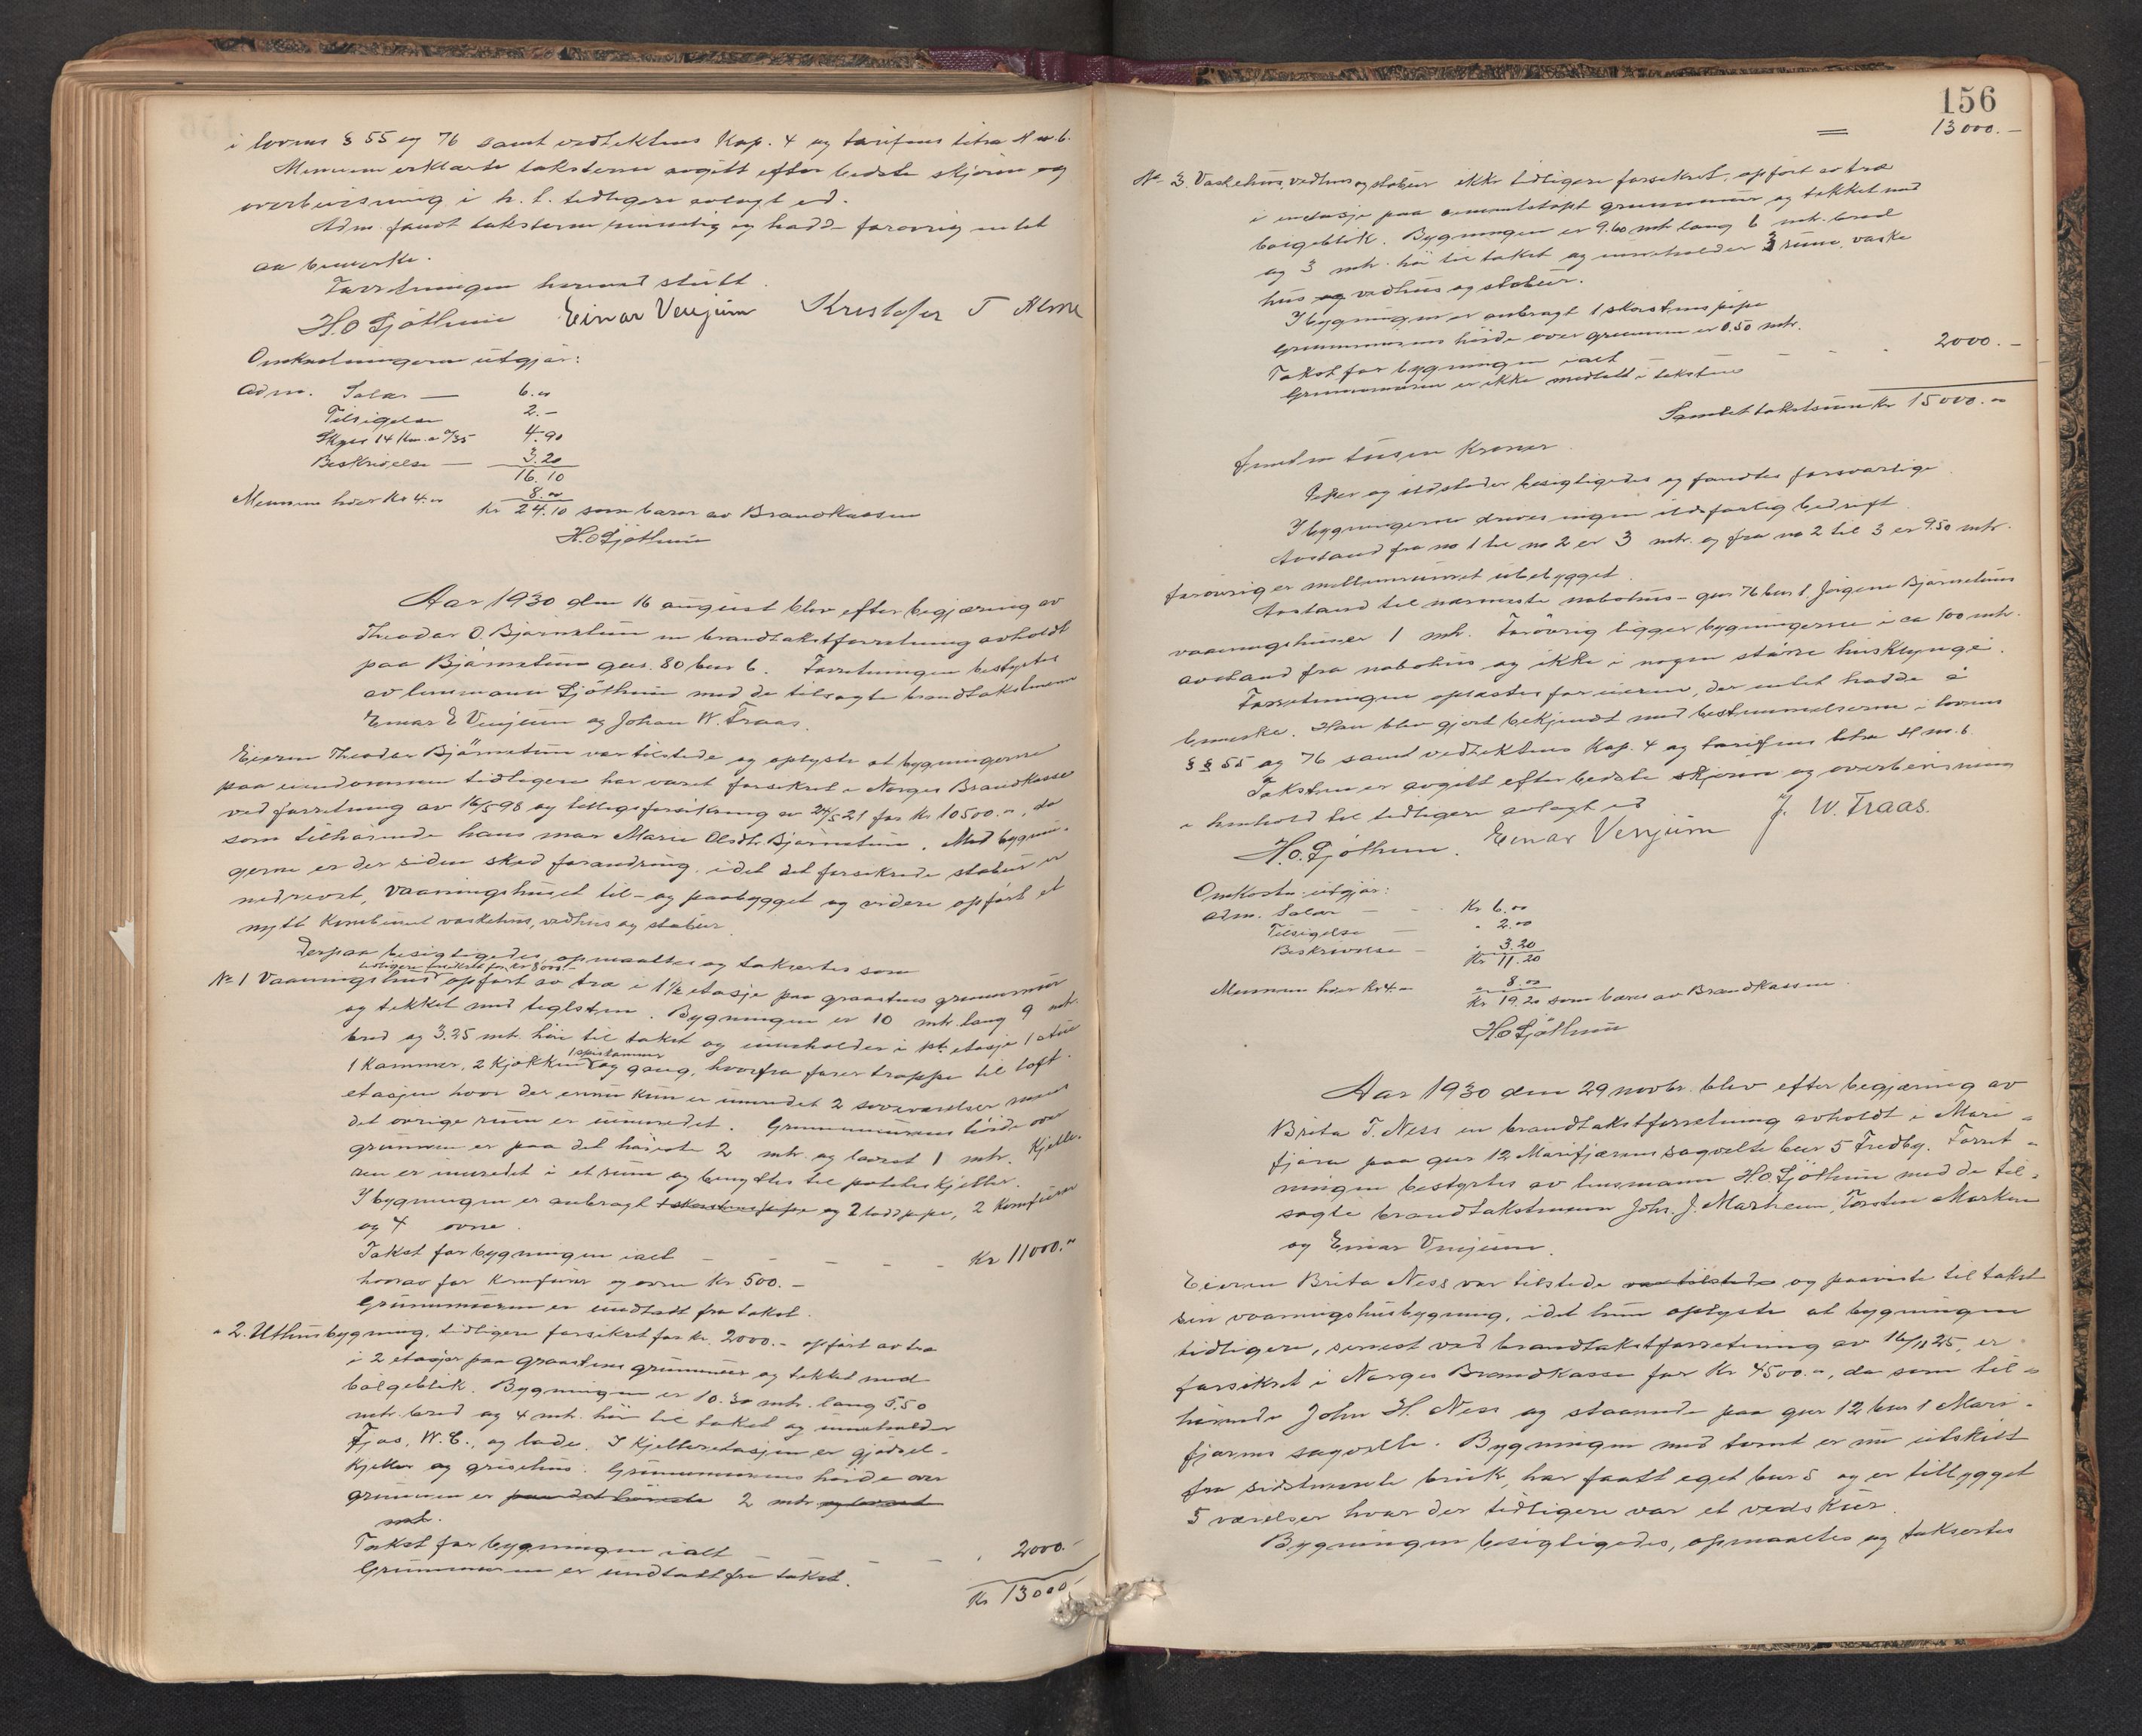 i lovens § 55 og 76 samt vedtektens Kap. 4 og tarifens litra H m. 6.
Mennene erklærte taksterne avgitt efter bedste skjønn og
overbevisning i h. t. tidligere avlagt ed.
Adm. fandt taksterne rimelig og hadde forøvrig intet
aa bemerke.
Forretningen hermed slutt.
H. O Fjøthun Einar Venjum Kristofer T Alme
Omkostningerne utgjør:
Adm. Salær — 6.00
Tilsigelse 2.–
Skyss 14 Km. a 0/35 4.90
Beskrivelse — 3.20
16.10
Mennene hver Kr 4.00 8.00
Kr 24.10 som bæres av Brandkassen
H. O Fjøthun
Aar 1930 den 16 august blev efter begjæring av
Theodor O. Bjørnetun en brandtakstforretning avholdt
paa Bjørnetun gnr. 80 bnr 6. Forretningen bestyrtes
av lensmann Fjøthun med de tilsagte brandtakstmenn
Einar E Venjum og Johan W. Fraas.
Eieren Theodor Bjørnetun var tilstede og oplyste at bygningerne
paa eiendommen tidligere har været forsikret i Norges Brandkasse
ved forretning av 16/5 98 og tilleggsforsikring av 24/5 21 for Kr 10500.00, da
som tilhørende hans mor Marie Olsdtr. Bjørnetun. Med bygnin-
gerne er der siden sked forandring, idet det forsikrede stabur er
nedrevet, vaaningshuset til- og paabygget og videre opført et
nytt kombinert vaskehus, vedhus og stabur.
Derpaa besigtigedes, opmaaltes og taksertes som
tidligere forsikret for Kr 8000.–
No 1 Vaaningshus opført av træ i 1½ etasje paa graastens grunnmur
og tekket med teglsten. Bygningen er 10 mtr. lang 9 mtr.
bred og 3.25 mtr. høi til taket og inneholder i 1ste etasje 1 stue
1 spiskammer
1 Kammer, 2 Kjøkken og gang, hvorfra fører trappe til loft-
etasjen hvor der ennu kun er innredet 2 soveværelser mens
det øvrige rum er uinnredet. Grunnmurens høide over
grunnen er paa det høieste 2 mtr. og lavest 1 mtr. Kjelle-
ren er innredet i et rum og benyttes til potetskjeller.
I bygningen er anbragt 1 skorstenspipe og 2 loddpipe, 2 Komfurer
og 4 ovne.
Takst for bygningen ialt – – – – – Kr 11000.00
hvorav for Komfurer og ovne Kr 500.–
Grunnmuren er undtatt fra takst.
" 2. Uthusbygning, tidligere forsikret for kr. 2000.– opført av træ
i 2 etasjer paa graastens grunnmur og tekket med
bølgeblik. Bygningen er 10.30 mtr. lang 5.50
mtr. bred og 4 mtr. høi til taket og inneholder
Fjøs, W. C., og lade. I Kjelleretasjen er gjødsel-
Kjeller og grisehus. Grunnmurens høide over
grunnen er paa det høieste 2 mtr. og lavest
mtr.
Takst for bygningen ialt – – – – " 2000.–
Grunnmuren er undtatt fra takst.
Kr 13000.–
156
= 13000.–
No 3. Vaskehus, vedhus og stabur ikke tidligere forsikret, opført av træ
i en etasje paa cementstøpt grunnmur og tekket med
bølgeblik. Bygningen er 9.60 mtr. lang 6 mtr. bred
og 3 mtr. høi til taket og inneholder 3 rum, vaske
hus og vedhus og stabur.
I bygningen er anbragt 1 skorstenspipe
Grunnmurens høide over grunnen er 0.50 mtr.
Takst for bygningen ialt – – – 2000.–
Grunnmuren er ikke medtatt i taksten
Samlet takstsum Kr 15000.00
femten tusen Kroner.
Piker og ildsteder besigtigedes og fandtes forsvarlige.
I bygningerne drives ingen ildsfarlig bedrift.
Avstand fra no 1 til no 2 er 3 mtr. og fra no 2 til 3 er 9.50 mtr.
forøvrig er mellemrummet ubebygget.
Avstand til nærmeste nabohus – gnr 76 bnr 1. Jørgine Bjørnetuns
vaaningshus er 1 mtr. Forøvrig ligger bygningerne i ca 100 mtr.
avstand fra nabohus og ikke i nogen større husklynge.
Forretningen oplæstes for eieren, der intet hadde å
bemerke. Han blev gjort bekjendt med bestemmelserne i lovens
§ § 55 og 76 samt vedtektens Kap. 4 og tarifens litra H m. 6.
Taksten er avgitt efter bedste skjønn og overbevisning
i henhold til tidligere avlagt ed
H. O. Fjøthun. Einar Venjum J. W. Fraas.
Omkostn. utgjør:
Adm. Salær – – Kr 6.00
Tilsigelse – " 2.00
Beskrivelse – " 3.20
Kr 11.20
Mennene hver Kr 4.– " 8.00
Kr 19.20 som bæres av Brandkassen.
H O Fjøthun
Aar 1930 den 29 novbr. blev efter begjæring av
Brita T. Ness en brandtakstforretning avholdt i Mari-
fjøra paa gnr 12 Marifjærens sagvolte bnr 5 Fredby. Forret-
ningen bestyrtes av lensmann H. O. Fjøthun med de til-
sagte brandtakstmenn Johs. J. Marheim, Torsten Marheim
og Einar Venjum.
Eieren Brita Ness var tilstede var tilstede og paaviste til takst
sin vaaningshusbygning, idet hun oplyste at bygningen
tidligere, senest ved brandtakstforretning av 16/11 25, er
forsikret i Norges Brandkasse for Kr 4500.00, da som til-
hørende John H. Ness og staaende paa gnr 12 bnr 1 Mari-
fjærens sagvolte. Bygningen med tomt er nu utskilt
fra sidstnevnte bruk, har faatt eget bnr 5 og er tilbygget
5 værelser hvor der tidligere var et vedskur.
Bygningen besigtigedes, opmaaltes og taksertes